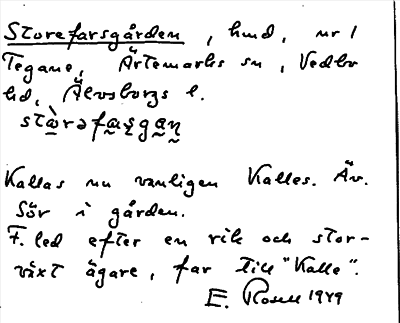 Storefarsgården, hmd, nr 1
Tegane, Ärtemarks sn, Vedbo
hd, Älvsborgs l.
stòrəfaṣgaṇ
Kallas nu vanligen Kalles. Äv.
Sör i gården.
F. led efter en rik och stor-
växt ägare, far till "Kalle".
E. Rosell 1949